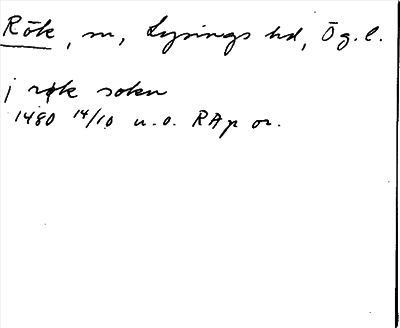 Rök, sn, Lysings hd, Ög. l.
j røk sokn
1480 14/10 u.o. RAp or.